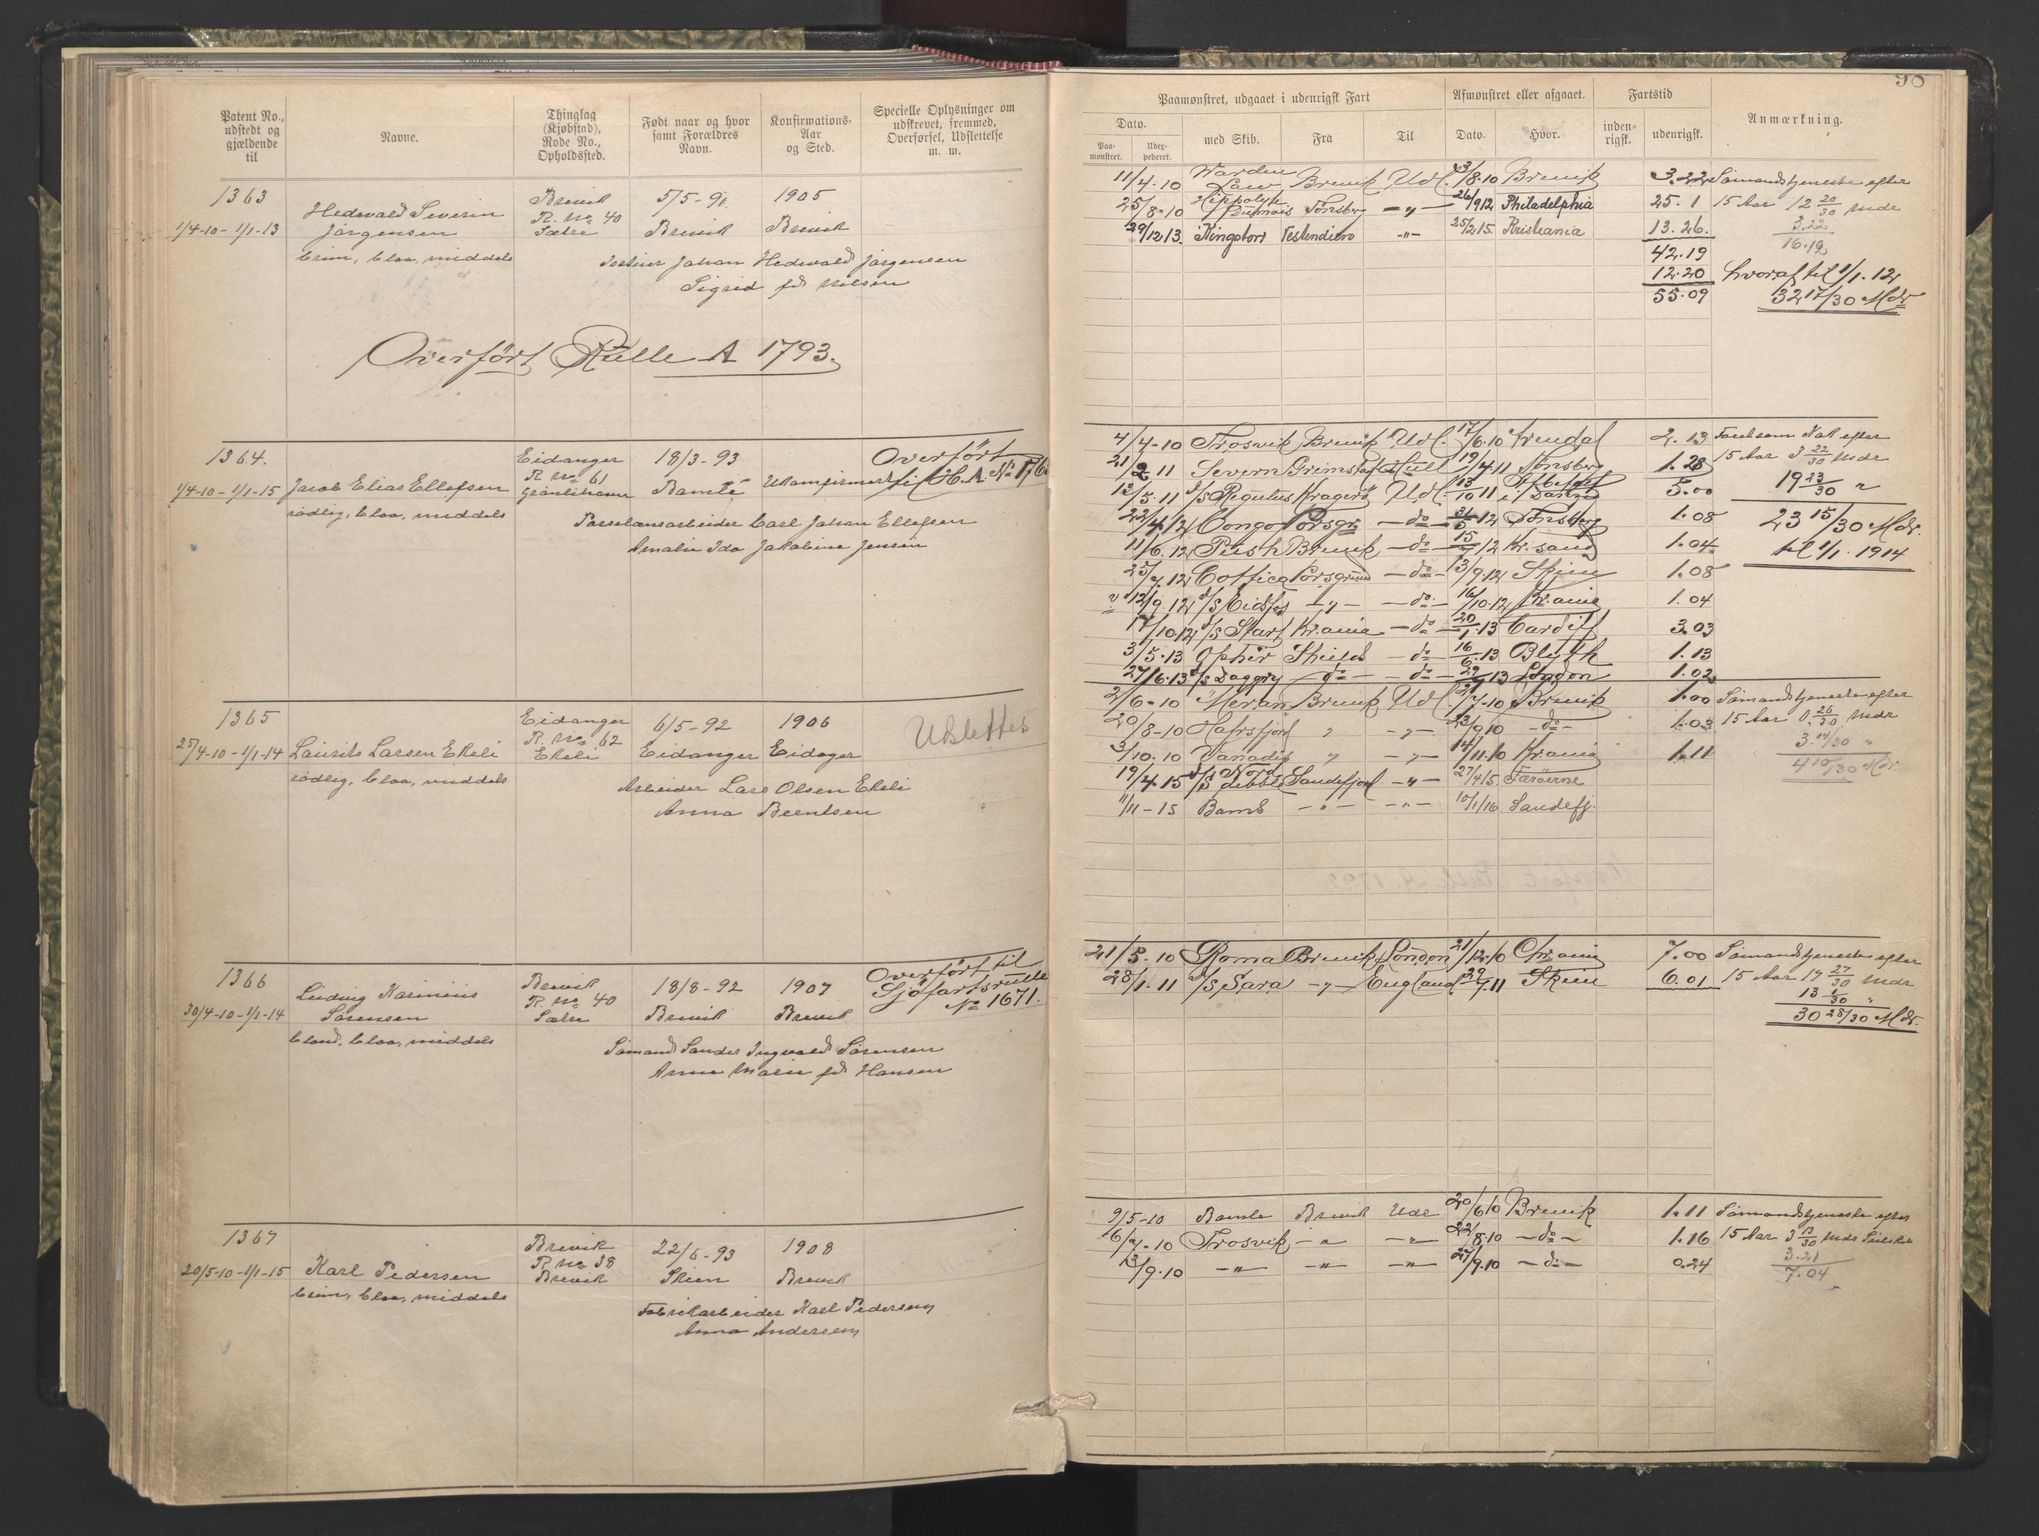 Patent No., udstedt og gjældende til
Navne.
Thinglag (Kjøbstad), Rode No., Opholdssted.
Født naar og hvor samt Forældres Navn.
Konfirmations-Aar og Sted.
Specielle Oplysninger om udskrevet, fremmed, Overførsel, Udslettelse m. m.
1363
Brevik 5/5-91 1905
Hedevald Severin R. No 40
1/4-10 - 1/1-13 Jørgensen Brevik Brevik
brun, blaa, middels Johan Hedevald Jørgensen
Sigrid fd Nilsen
Overført Rulle A 1793.
1364. Eidanger 18/3-93 Overført
R No 61 til H.A. No
1/4-10 - 1/1-15 Jacob Elias Ellefsen Bamle Ukonfirmert
rødlig, blaa, middels Porselænsarbeider Carl Johan Ellefsen
Amalie Ida Jakobine Jensen
1365 Eidanger 6/5-92 1906 Udslettes
R. No 62
25/4-10 - 1/1-14 Laurits Larsen Ekeli Ekeli Eidanger Eidager
rødlig, blaa, middels Arbeider Lars Olsen Ekeli
Anna Berntsen
1366 Brevik 18/8-92 1907 Overført til
Ludvig R. No 40 Sjøfartsrulle
30/4-10 - 1/1-14 Sørensen Brevik Brevik No 1671.
blond, blaa, middels Sømand Sander Ingvald Sørensen
Anna Marie fd Hansen
1367 Brevik 22/6-93 1908
R No 38
20/5-10 - 1/1-15 Karl Pedersen Brevik Skien Brevik
brun, blaa, middels Fabrikarbeider Karl Pedersen
Anna Andersen
98
Paamønstret, udgaaet i udenrigsk Fart
Afmønstret eller afgaaet.
Fartstid
Anmærkning.
Dato.
Paamønstret. Udexpederet.
med Skib. Fra Til Dato. Hvor. indenrigsk. udenrigsk.
11/4-10 Warden Law Brevik Udl. /8-10 Brevik 3.22 Sømandstjeneste efter
25/8-10 Hippolyte Dumois Tønsberg -"- 26/9 12 Philadelphia 25.1 15 Aar 12 20/30 Mdr
29/12 13. Kingston Vestindien -"- 25/2 15. Kristiania 13.26. 3.22
42.19 16.12
12.20 hvoraf til 1/1.12
55.09 32 17/30 Mdr
4/4-10 Trosvik Brevik Udl. 17/6.10 Arendal 2.13 Fart som efter
21/2 11 Severn Grimstad Hull 19/4 11 Tønsberg 1.28 15 Aar 3 22/30 Mdr
12/5.11 d/s Regulus Kragerø Udl 13/10 11 5.00 19 23/30 "
22/4 12 Congo Porsgr. -do- 31/5 12 Tønsberg 1.08 23 15/30 Mdr.
11/6.12 Brevik -do- 15/7 12 Kr.sand 1.04. til 1/1.1914
25/7.12 Cottica Porsgrund -do- 3/9.12 Skien 1.08
12/9.12 d/s Eidsfos -"- -do- 16/10.12 Kr.ania 1.04
17/10.12 d/s Start Kr.ania -do- 20/1.13 Cardiff 3.03
3/5.13 Ophir Shields -do- 16/6.13 Blyth 1.13
27/6.13 d/s Daggry -do- -do- 29/7 13 London 1.02
2/6-10 Meran Brevik Udl. 2/7-10 Brevik 1.00 Sømandstjeneste efter
20/8-10 Hafrsfjord " -"- 23/9 10 -do- 1.03 15 Aar 0 26/30 Mdr
3/10.10 Vanadis " -"- 14/11.10 Kr.ania 1.11 3.14/30 "
19/4.15 Sandefjord -"- 27/4 15 Færøerne 4 10/30 Mdr
11/11-15 -"- -"- 10/1/16 Sandefj.
21/5.10 Roma Brevik London 21/12.10 Chr.ania 7.00 Sømandstjeneste efter
28/1.11 d/s Sara -"- England 29/7.11 Skien 6.01 15 Aar 17 27/30 Mdr
13 1/30 "
30 28/30 Mdr.
9/5-10 Bamle Brevik Udl 20/6 10 Brevik 1.11 Sømandstjeneste efter
16/7-10 Trosvik -"- -"- 22/8.10 -do- 1.16 15 Aar 3 Mdr
13/9.10 -"- -"- -"- 27/9.10 -do- 0.24 3.21
7.04